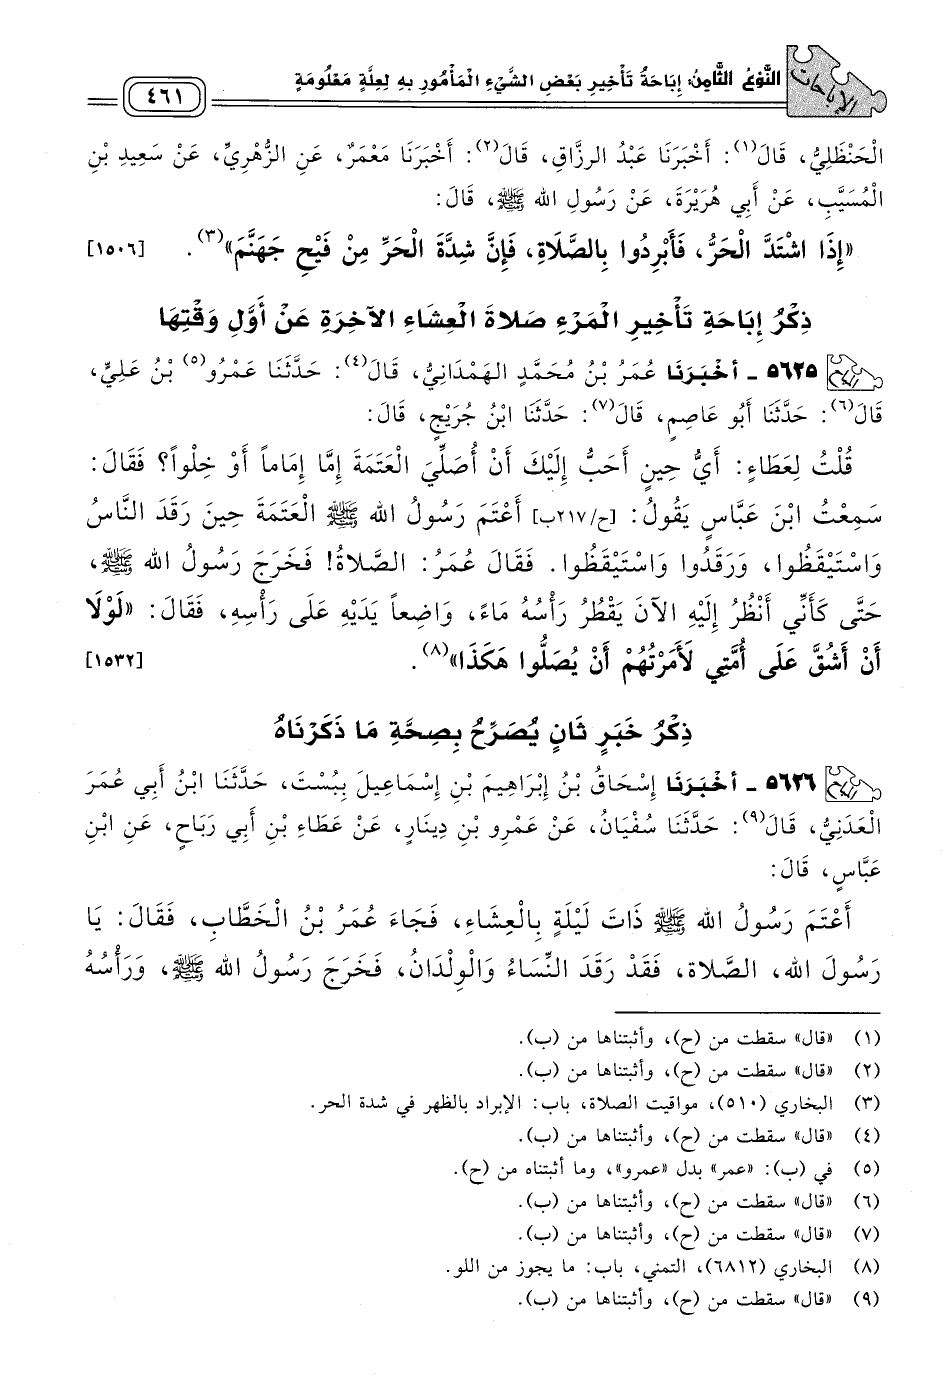 الإباحات
النَّوْعُ الثَّامِنُ: إِبَاحَةُ تَأْخِيرِ بَعْضِ الشَّيْءِ الْمَأْمُورِ بِهِ لِعِلَّةٍ مَعْلُومَةٍ
٤٦١
الْحَنْظَلِيُّ، قَالَ(١): أَخْبَرَنَا عَبْدُ الرزَّاقِ، قَالَ(٢): أَخْبَرَنَا مَعْمَرٌ، عَنِ الزُّهْرِيِّ، عَنْ سَعِيدِ بْنِ
الْمُسَيَّبِ، عَنْ أَبِي هُرَيْرَةَ، عَنْ رَسُولِ الله ﷺ، قَالَ:
«إِذَا اشْتَدَّ الْحَرُّ، فَأَبْرِدُوا بِالصَّلَاةِ، فَإِنَّ شِدَّةَ الْحَرِّ مِنْ فَيْحِ جَهَنَّمَ»(٣). [١٥٠٦]
ذِكْرُ إِبَاحَةِ تَأْخِيرِ الْمَرْءِ صَلَاةَ الْعِشَاءِ الآخِرَةِ عَنْ أَوَّلِ وَقْتِهَا
٥٦٢٥ - أخْبَرَنَا عُمَرُ بْنُ مُحَمَّدٍ الهَمْدَانِيُّ، قَالَ(٤): حَدَّثَنَا عَمْرُو(٥) بْنُ عَلِيٍّ،
قَالَ(٦): حَدَّثَنَا أَبُو عَاصِمٍ، قَالَ(٧): حَدَّثَنَا ابْنُ جُرَيْجٍ، قَالَ:
قُلْتُ لِعَطَاءٍ: أَيُّ حِينٍ أَحَبُّ إِلَيْكَ أَنْ أُصَلِّيَ الْعَتَمَةَ إِمَّا إِمَاماً أَوْ خِلْواً؟ فَقَالَ:
سَمِعْتُ ابْنَ عَبَّاسٍ يَقُولُ: [ح/٢١٧ب] أَعْتَمَ رَسُولُ الله ﷺ الْعَتَمَةَ حِينَ رَقَدَ النَّاسُ
وَاسْتَيْقَظُوا، وَرَقَدُوا وَاسْتَيْقَظُوا. فَقَالَ عُمَرُ: الصَّلَاةُ! فَخَرَجَ رَسُولُ الله ﷺ،
حَتَّى كَأَنِّي أَنْظُرُ إِلَيْهِ الآنَ يَقْطُرُ رَأْسُهُ مَاءً، وَاضِعاً يَدَيْهِ عَلَى رَأْسِهِ، فَقَالَ: «لَوْلَا
أَنْ أَشُقَّ عَلَى أُمَّتِي لَأَمَرْتُهُمْ أَنْ يُصَلُّوا هَكَذَا»(٨). [١٥٣٢]
ذِكْرُ خَبَرٍ ثَانٍ يُصَرِّحُ بِصِحَّةِ مَا ذَكَرْنَاهُ
٥٦٢٦ - أخْبَرَنَا إِسْحَاقُ بْنُ إِبْرَاهِيمَ بْنِ إِسْمَاعِيلَ بِبُسْتَ، حَدَّثَنَا ابْنُ أَبِي عُمَرَ
الْعَدَنِيُّ، قَالَ(٩): حَدَّثَنَا سُفْيَانُ، عَنْ عَمْرِو بْنِ دِينَارٍ، عَنْ عَطَاءِ بْنِ أَبِي رَبَاحٍ، عَنِ ابْنِ
عَبَّاسٍ، قَالَ:
أَعْتَمَ رَسُولُ الله ﷺ ذَاتَ لَيْلَةٍ بِالْعِشَاءِ، فَجَاءَ عُمَرُ بْنُ الْخَطَّابِ، فَقَالَ: يَا
رَسُولَ الله، الصَّلَاةَ، فَقَدْ رَقَدَ النِّسَاءُ وَالْوِلْدَانُ، فَخَرَجَ رَسُولُ الله ﷺ، وَرَأْسُهُ
(١) «قال» سقطت من (ح)، وأثبتناها من (ب).
(٢) «قال» سقطت من (ح)، وأثبتناها من (ب).
(٣) البخاري (٥١٠)، مواقيت الصلاة، باب: الإبراد بالظهر في شدة الحر.
(٤) «قال» سقطت من (ح)، وأثبتناها من (ب).
(٥) في (ب): «عمر» بدل «عمرو»، وما أثبتناه من (ح).
(٦) «قال» سقطت من (ح)، وأثبتناها من (ب).
(٧) «قال» سقطت من (ح)، وأثبتناها من (ب).
(٨) البخاري (٦٨١٢)، التمني، باب: ما يجوز من اللو.
(٩) «قال» سقطت من (ح)، وأثبتناها من (ب).